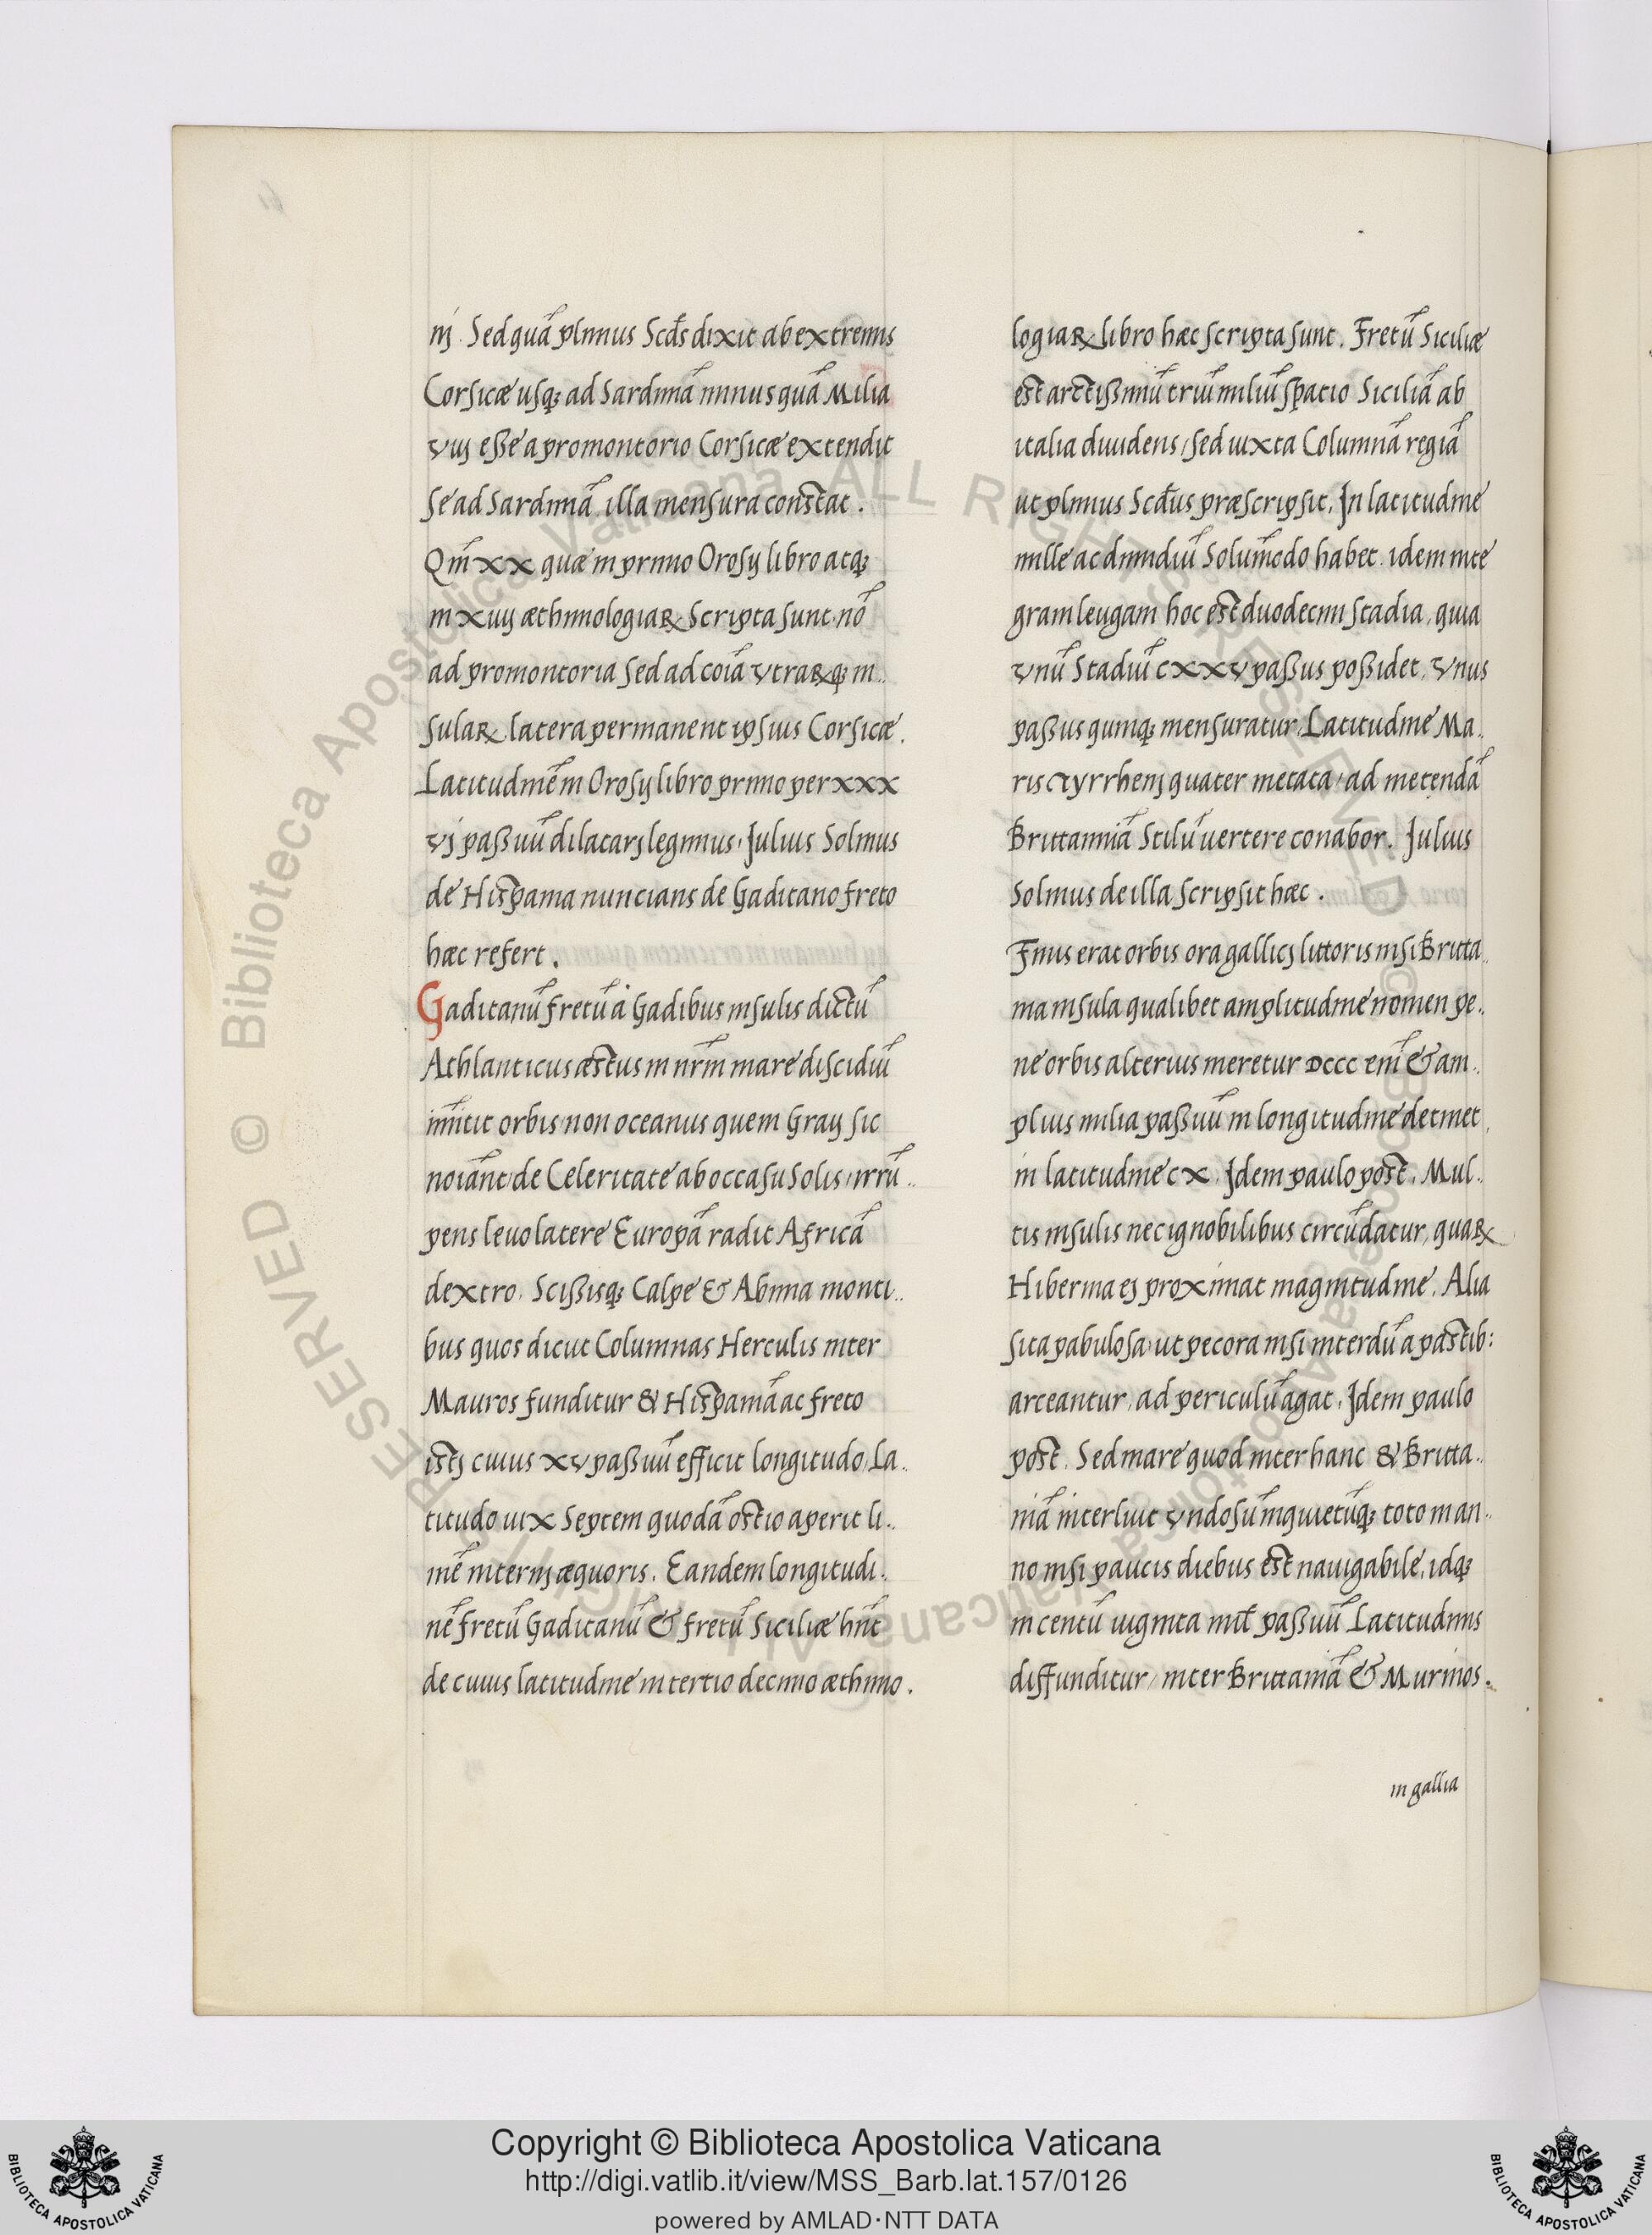 nij. Sed quā plinius Scđs dixit ab extremis
Corsicæ usq; ad Sardiniā minus quā Milia
vııj esse a promontorio Corsicæ extendit
se ad Sardiniā illa mensura constat.
Qm̄ xx quæ in primo Orosij libro atq;
in xıııj æthimologiaꝝ Scripta sunt. nō
ad promontoria sed ad coīa vtraꝝq; in..
sulaꝝ latera permanent ipsius Corsicæ.
Latitudinē in Orosij libro primo per xxx
vj passuū dilatarj legimus. Julius Solinus
de Hispania nuncians de Gaditano freto
hæc refert.
Gaditanū fretū á Gadibus insulis dictū
Athlanticus æstus in nr̄m mare discidiū
im̄itit orbis non oceanus quem Graij sic
noiānt de Celeritate ab occasu Solis irrū..
pens leuo latere Europā radit Africā
dextro. Scissisq; Calpe & Abinna monti..
bus quos dicut Columnas Herculis inter
Mauros funditur & Hispaniā ac freto
istj cuius xv passuū efficit longitudo La..
titudo uix Septem quodā ostio aperit li..
mē internj æquoris. Eandem longitudi..
nē fretū Gaditanū & fretū Siciliæ hn̄t
de cuius latitudine in tertio decimo æthimo.
logiaꝝ libro hæc scripta sunt. Fretū Siciliæ
est arctissimū triū miliū spatio Siciliā ab
italia diuidens, sed iuxta Columnā regiā
ut plinius Scđus præscripsit. In latitudine
mille ac dimidiū Solum̄odo habet. idem inte
gram leugam hoc est duodecim stadia, quia
vnū Stadiū cxxv passus possidet. vnus
passus quinq; mensuratur. Latitudine Ma..
ris tyrrhenj quater metata, ad metendā
Brittanniā Stilū uertere conabor. Julius
Solinus de illa scripsit hæc.
Finis erat orbis ora gallicj littoris nisi Britta..
nia insula qualibet amplitudine nomen pe..
ne orbis alterius meretur DCCC enī & am..
plius milia passuū in longitudine detinet,
in latitudine cx. Idem paulo post. Mul..
tis insulis nec ignobilibus circūdatur, quaꝝ
Hibernia ej proximat magnitudine. Alia
sita pabulosa, ut pecora nisi interdū a pastib:
arceantur, ad periculū agat. Idem paulo
post. Sed mare quod inter hanc & Britta..
niā interluit vndosū inquietūq; toto in an..
no nisi paucis diebus est nauigabile, idq;
in centū uiginta mil̄ passuū Latitudinis
diffunditur, inter Brittaniā & Murinos.
in gallia
BIBLIOTECA APOSTOLICA VATICANA
Copyright © Biblioteca Apostolica Vaticana
http://digi.vatlib.it/view/MSS_Barb.lat.157/0126
powered by AMLAD·NTT DATA
BIBLIOTECA APOSTOLICA VATICANA